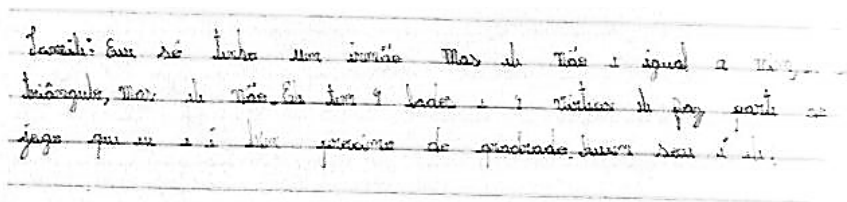 Eu só tenho um irmão Mas ele não é igual a
triângulo, Mas ele não. Ele tem 4 lados e 4 vértices ele faz parte
jogo que eu e é bem proximo do quadrado. Quem sou é ele.